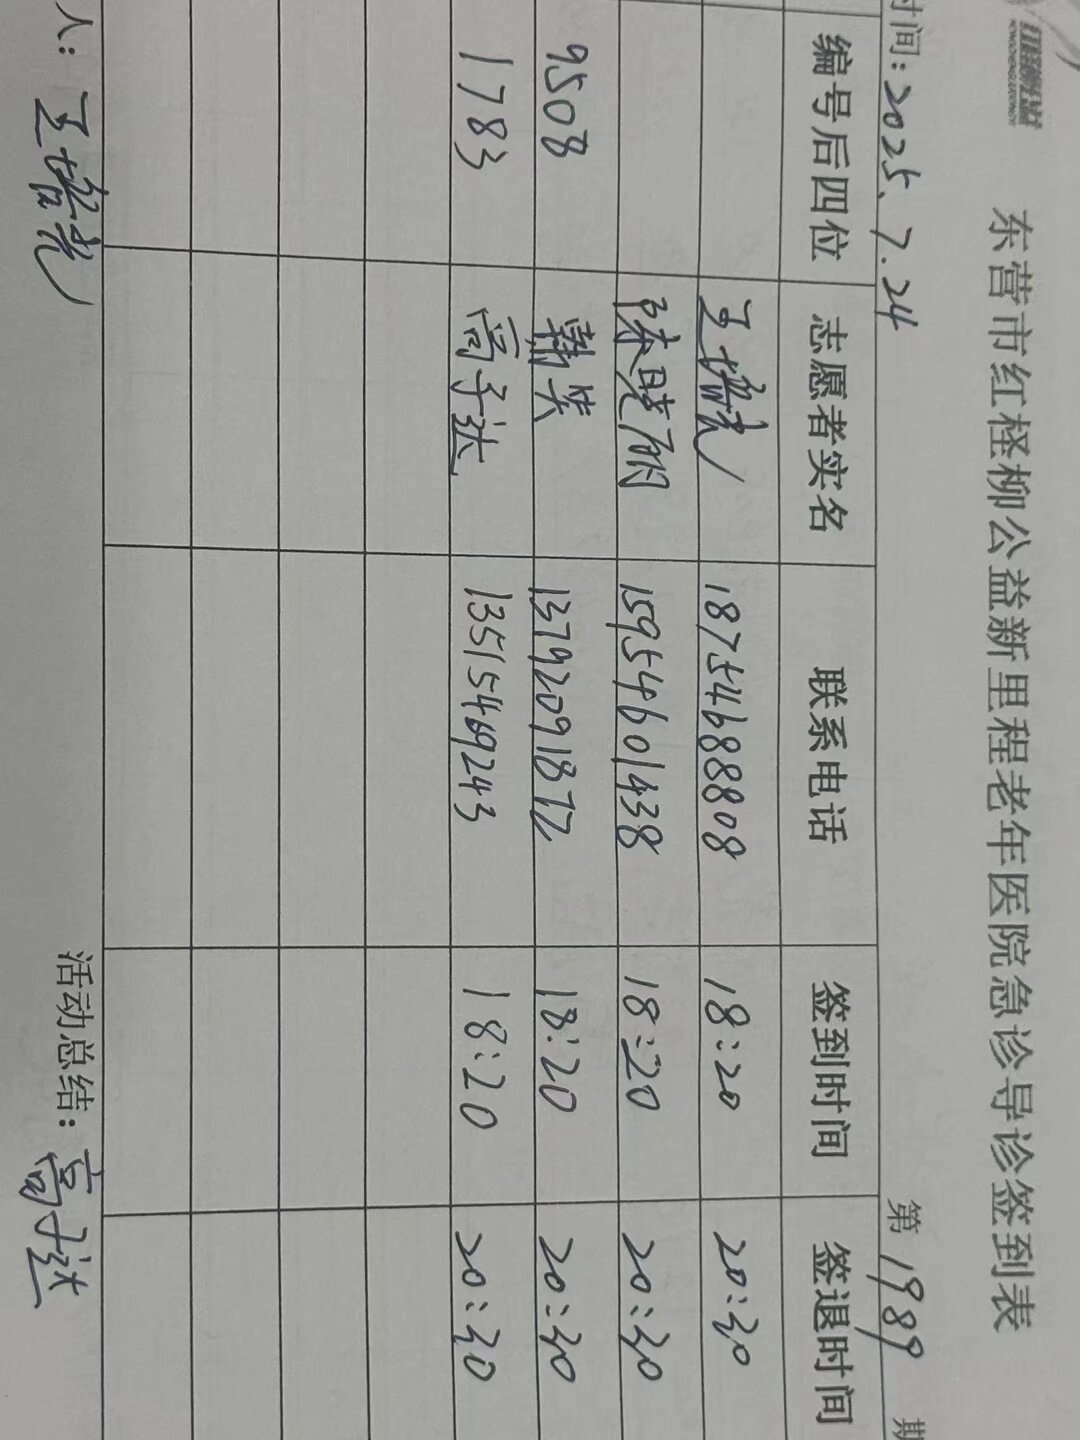 东营市红柽柳公益新里程老年医院急诊导诊签到表
时间：2025、7.24 第1989期
编号后四位 志愿者实名 联系电话 签到时间 签退时间
18754688808 18:20 20:30
陈晓丽 15954601438 18:20 20:30
9508 韩笑 13792091872 18:20 20:30
1783 高子达 13515469243 18:20 20:30
人： 活动总结：高子达